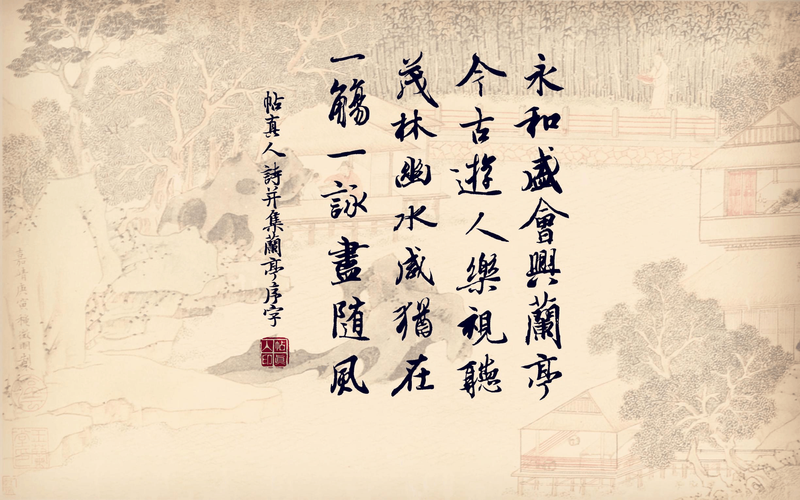 永和盛會興蘭亭
今古遊人樂視聽
茂林幽水感猶在
一觴一詠盡隨風
帖真人詩并集蘭亭序字
帖真人印